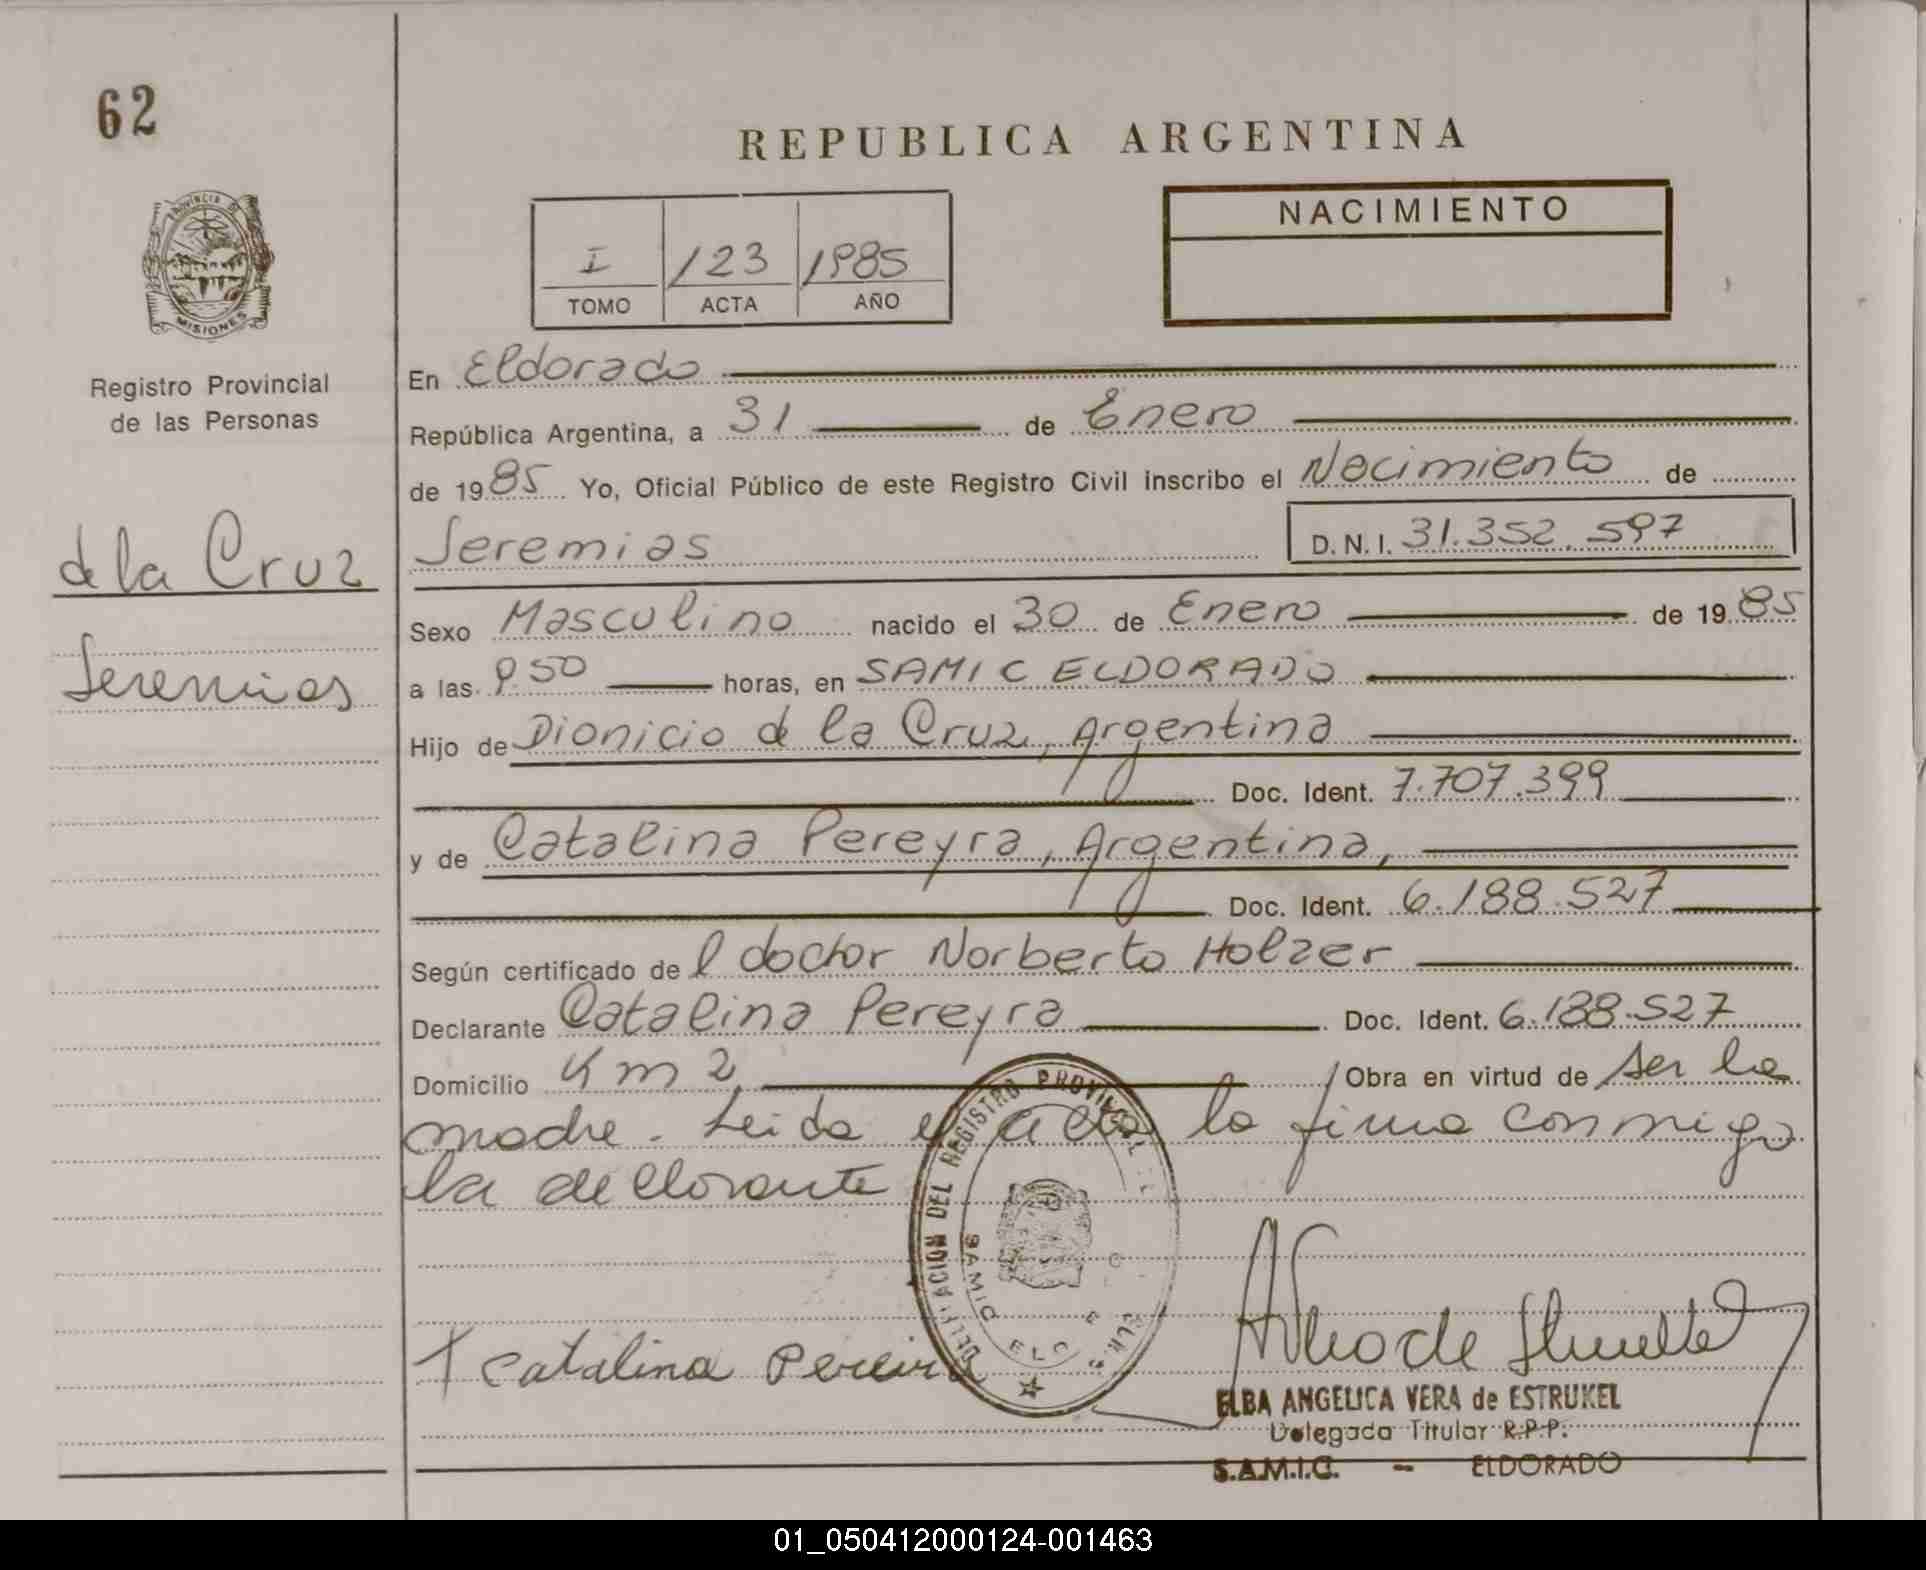 62
REPUBLICA ARGENTINA
NACIMIENTO
I 123 1985
TOMO ACTA AÑO
PROVINCIA DE
MISIONES
Registro Provincial
de las Personas
de la Cruz
Jeremias
En Eldorado
República Argentina, a 31 de Enero
de 1985 Yo, Oficial Público de este Registro Civil inscribo el Nacimiento de
Jeremias D.N.I. 31.352.597
Sexo Masculino nacido el 30 de Enero de 1985
a las 9.50 horas, en SAMIC ELDORADO
Hijo de Dionicio de la Cruz, Argentina
Doc. Ident. 7.707.399
y de Catalina Pereyra, Argentina,
Doc. Ident. 6.188.527
Según certificado de l doctor Norberto Holzer
Declarante Catalina Pereyra Doc. Ident. 6.188.527
Domicilio Km 2 Obra en virtud de ser la
madre. Leida el acta la firma conmigo
la declorante
DEL REGISTRO PROVINCIAL
SAMIC ELD
Catalina Pereira
ELBA ANGELICA VERA de ESTRUKEL
Delegada Titular R.P.P.
S.A.M.I.C. - ELDORADO
01_050412000124-001463